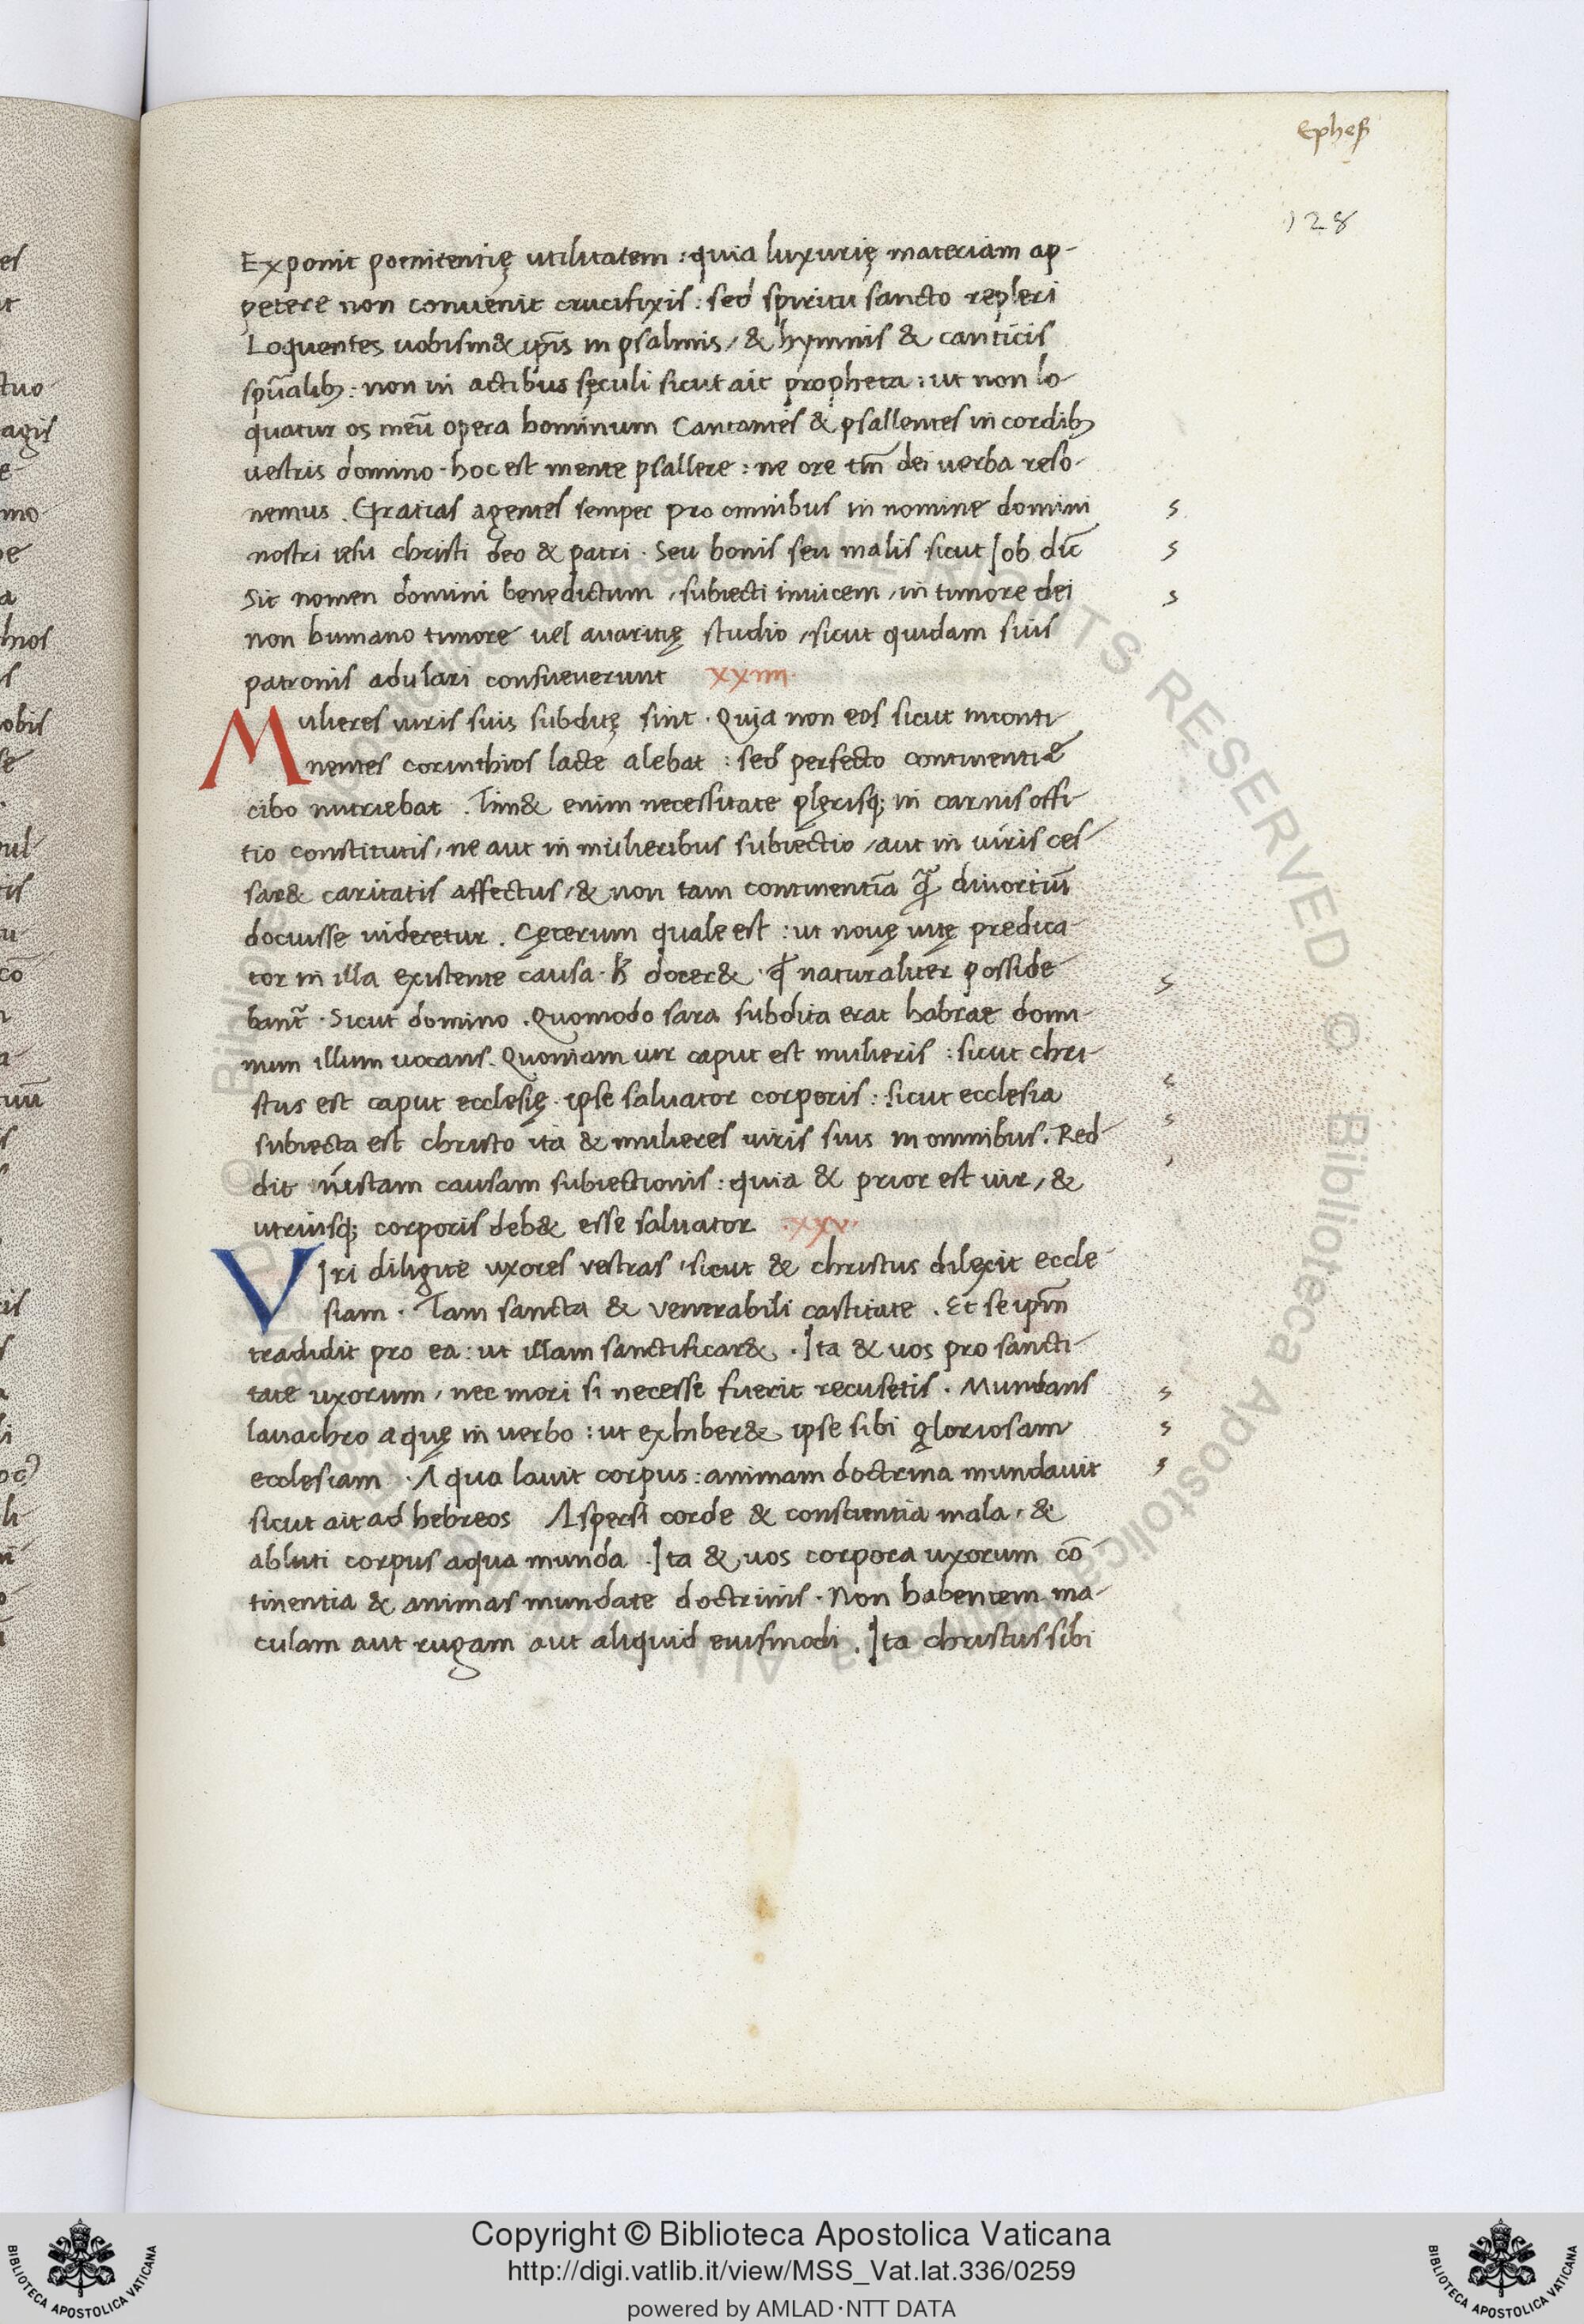 Ephes
128
Exponit poenitentię utilitatem : quia luxurię materiam ap-
petere non convenit crucifixis : sed spiritu sancto repleri
Loquentes uobism& ip̄is in psalmis, & hymnis & canticis
spūalib; : non in actibus sęculi sicut ait propheta : ut non lo-
quatur os meū opera hominum Cantantes & psallentes in cordib;
vestris domino · hoc est mente psallere : ne ore tm̄ dei verba reso-
nemus . Gratias agentes semper pro omnibus in nomine domini
nostri iesu christi deo & patri · Seu bonis seu malis sicut Job dic̄
Sit nomen domini benedictum , subiecti invicem , in timore dei
non humano timore vel avaritię studio , sicut quidam suis
patronis adulari consueverunt xxiiii·
Mulieres viris suis subditę sint · Quia non eos sicut inconti-
nentes corinthios lacte alebat : sed perfecto continentiæ
cibo nutriebat . Tim& enim necessitate plęrisq; in carnis offi-
tio constitutis, ne aut in mulieribus subiectio , aut in viris ces-
sar& caritatis affectus, & non tam continentiā quā divortiū
docuisse videretur . Cęterum quale est : ut novę vitę predica-
tor in illa existente causa · h̄ docer& · q̄ naturaliter posside-
bant̄ · Sicut domino . Quomodo sara subdita erat habrae domi-
num illum vocans . Quoniam vir caput est mulieris : sicut chri-
stus est caput ecclesię · ipse salvator corporis : sicut ecclesia
subiecta est christo ita & mulieres viris suis in omnibus . Red-
dit iustam causam subiectionis : quia & prior est vir, &
utriusq; corporis deb& esse salvator ·xxv·
VIri diligite uxores vestras , sicut & christus dilexit eccle-
siam · Tam sancta & venerabili castitate . Et seip̄m
tradidit pro ea : ut illam sanctificar& . Ita & vos pro sancti-
tate uxorum , nec mori si necesse fuerit recusetis . Mundans
lavachro aquę in verbo : ut exhiber& ipse sibi gloriosam
ecclesiam · Aqua lavit corpus : animam doctrina mundavit
sicut ait ad hebreos Aspersi corde & conscientia mala , &
abluti corpus aqua munda . Ita & vos corpora uxorum cō-
tinentia & animas mundate doctrinis · Non habentem ma-
culam aut rugam aut aliquid eiusmodi . Ita christus sibi
Copyright © Biblioteca Apostolica Vaticana
http://digi.vatlib.it/view/MSS_Vat.lat.336/0259
powered by AMLAD·NTT DATA
BIBLIOTECA APOSTOLICA VATICANA
BIBLIOTECA APOSTOLICA VATICANA